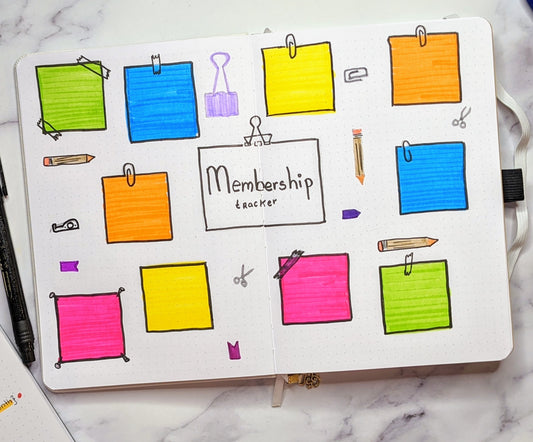 Membership
tracker